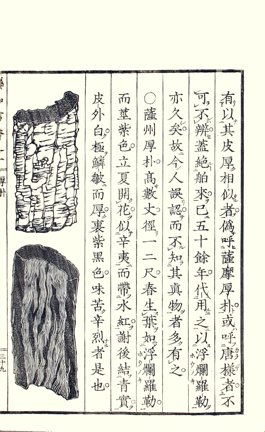 有以其皮厚相似者偽呼薩摩厚朴或呼唐樣者不
可不辨蓋絶舶來已五十餘年代用之以浮爛羅勒
亦久矣故今人誤認而不知其真物者多有之
○薩州厚朴高數丈徑一二尺春生葉如浮爛羅勒
而莖紫色立夏開花似辛夷而帶水紅謝後結青實
皮外白極鱗皴而厚裏紫黑色味苦辛烈者是也